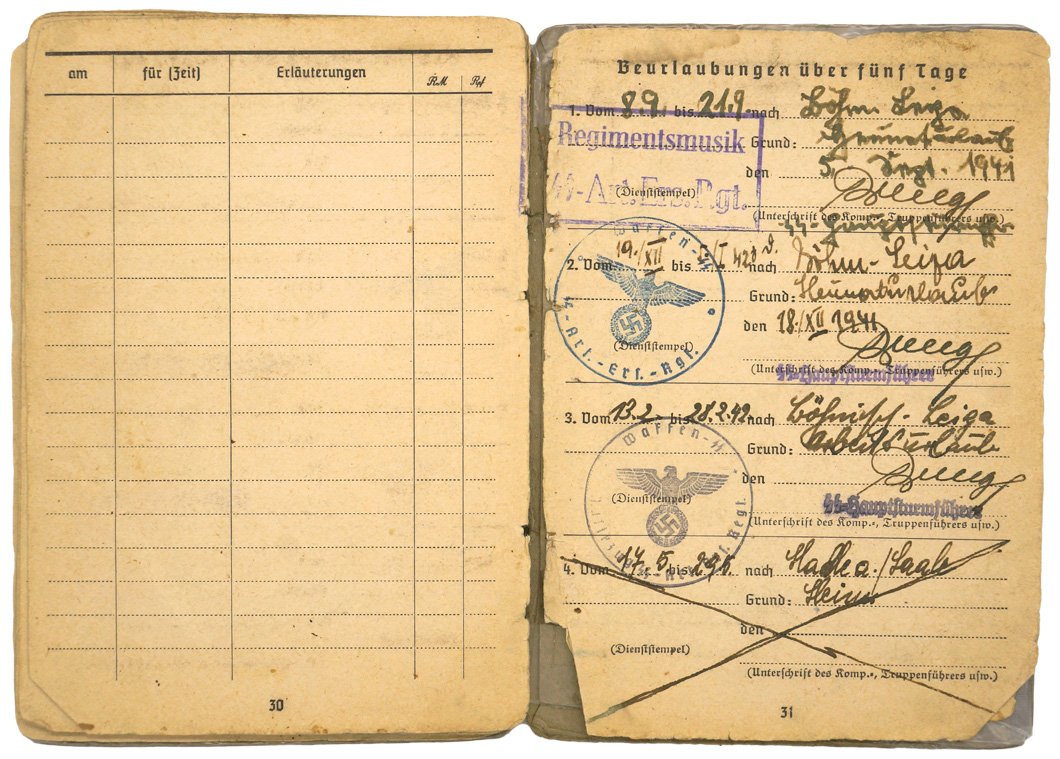 am für (Zeit) Erläuterungen RM Rpf
30
Beurlaubungen über fünf Tage
1. Vom 8.9. bis 21.9. nach Böhm. Leipa
Regimentsmusik
SS-Art.Ers.Rgt.
Grund:
den 5. Sept. 1941
(Dienststempel)
(Unterschrift des Komp.-, Truppenführers usw.)
Waffen-SS
SS-Art.-Ers.-Rgt.
2. Vom 19./XII bis nach Böhm-Leipa
Grund: Heimaturlaub
den 18./XII 1941
(Dienststempel)
(Unterschrift des Komp.-, Truppenführers usw.)
SS-Hauptsturmführer
3. Vom 13.2. bis 28.2.42. nach Leipa
Waffen-SS
Grund: Arbeitsurlaub
den
(Dienststempel)
SS-Hauptsturmführer
(Unterschrift des Komp.-, Truppenführers usw.)
4. Vom 17.5. bis 29.5. nach /Saale
Grund:
den
(Dienststempel)
(Unterschrift des Komp.-, Truppenführers usw.)
31